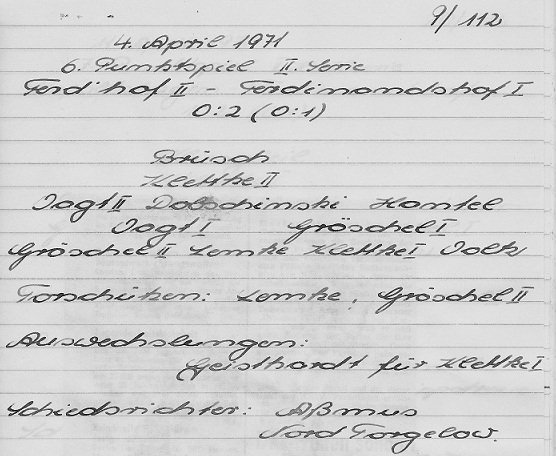 9/112
4. April 1971
6. Punktspiel II. Serie
Ferd'hof II - Ferdinandshof I
0:2 (0:1)
Brüsch
Klettke II
Vogt II Dobschinski Hantel
Vogt I Gröschel I
Gröschel II Lemke Klettke I Voltz
Torschützen: Lemke, Gröschel II
Auswechslungen:
Geisthardt für Klettke I
Schiedsrichter: Aßmus
Nord Torgelow.